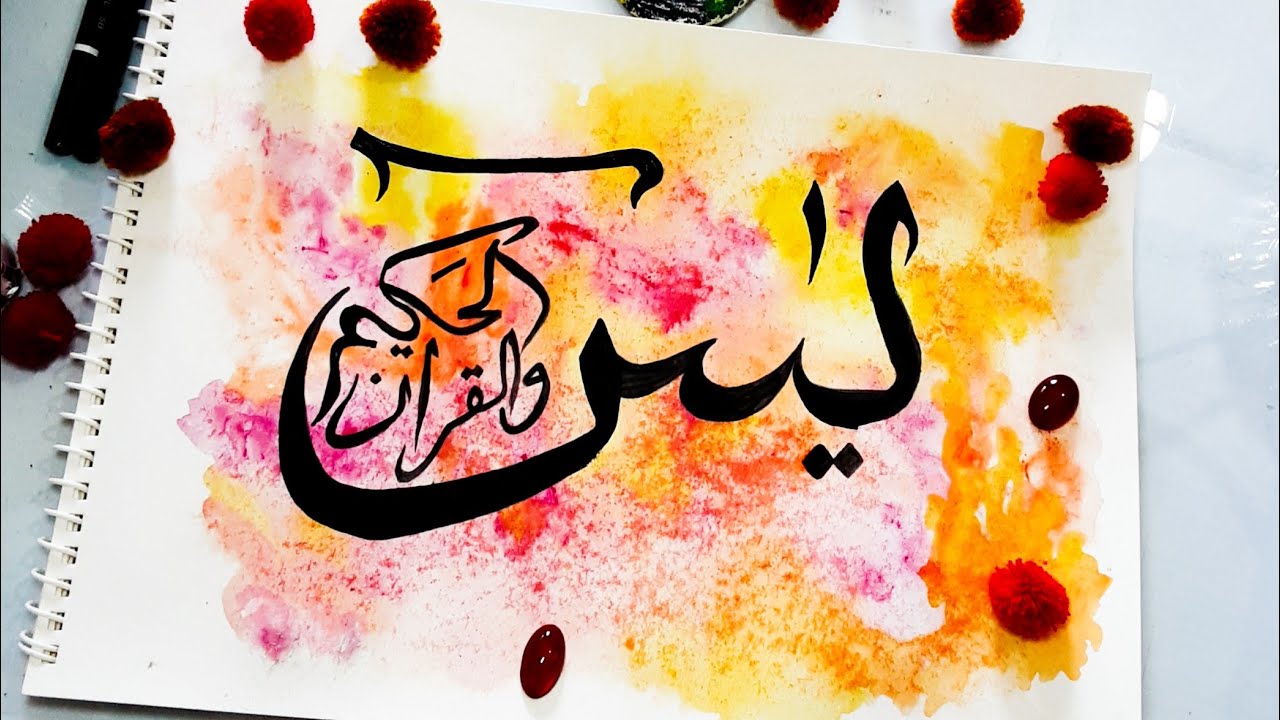 يٰسٓ
والقران
الحكيم